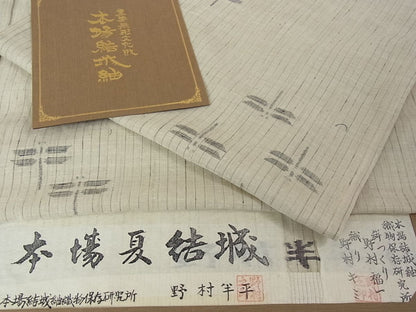 重要無形文化財
本場結城紬
本場夏結城
半
本場結城紬織物保存研究所
野村半平
本場結城紬
織物保存研究所
野村福一
織り
野村キミ